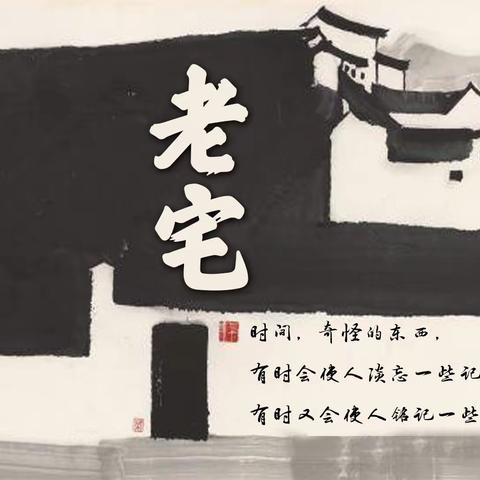 老宅
时间，奇怪的东西，
有时会使人淡忘一些记
有时又会使人铭记一些